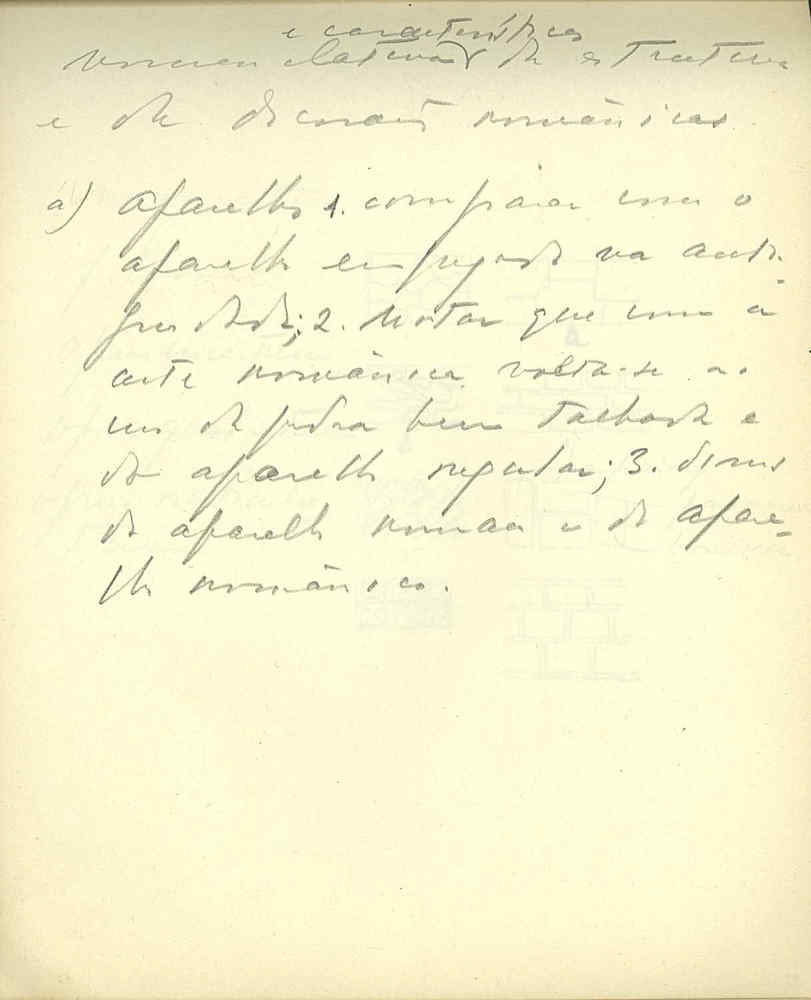 e características
nomenclatura da estrutura
e da decoração românicas
a) aparelho 1. comparar com o
aparelho empregado na anti-
guidade; 2. Notar que com a
arte românica volta-se ao
uso da pedra bem talhada e
do aparelho regular; 3.
do aparelho romano e do apare-
lho românico.